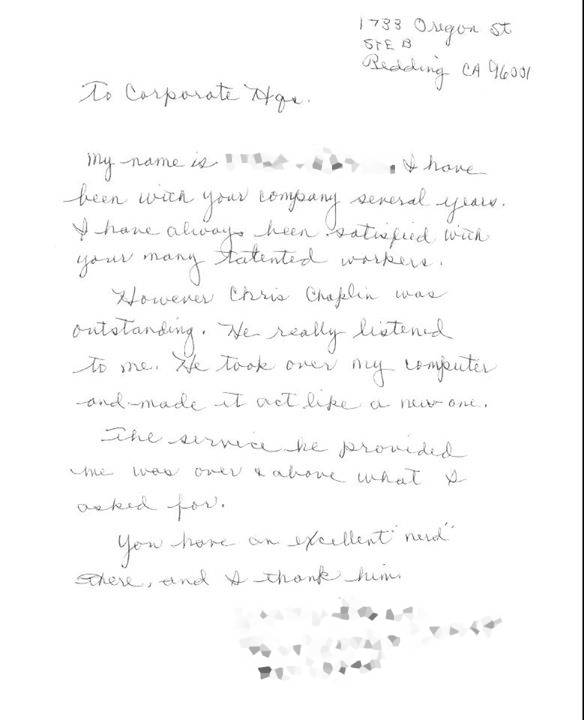 1733 Oregon St
STE B
Redding CA 96001
To Corporate Hqs.
My name is , I have
been with your company several years.
I have always been satisfied with
your many talented workers.
However Chris Chaplin was
outstanding. He really listened
to me. He took over my computer
and made it act like a new one.
The service he provided
me was over & above what I
asked for.
You have an excellent "nerd"
there, and I thank him.